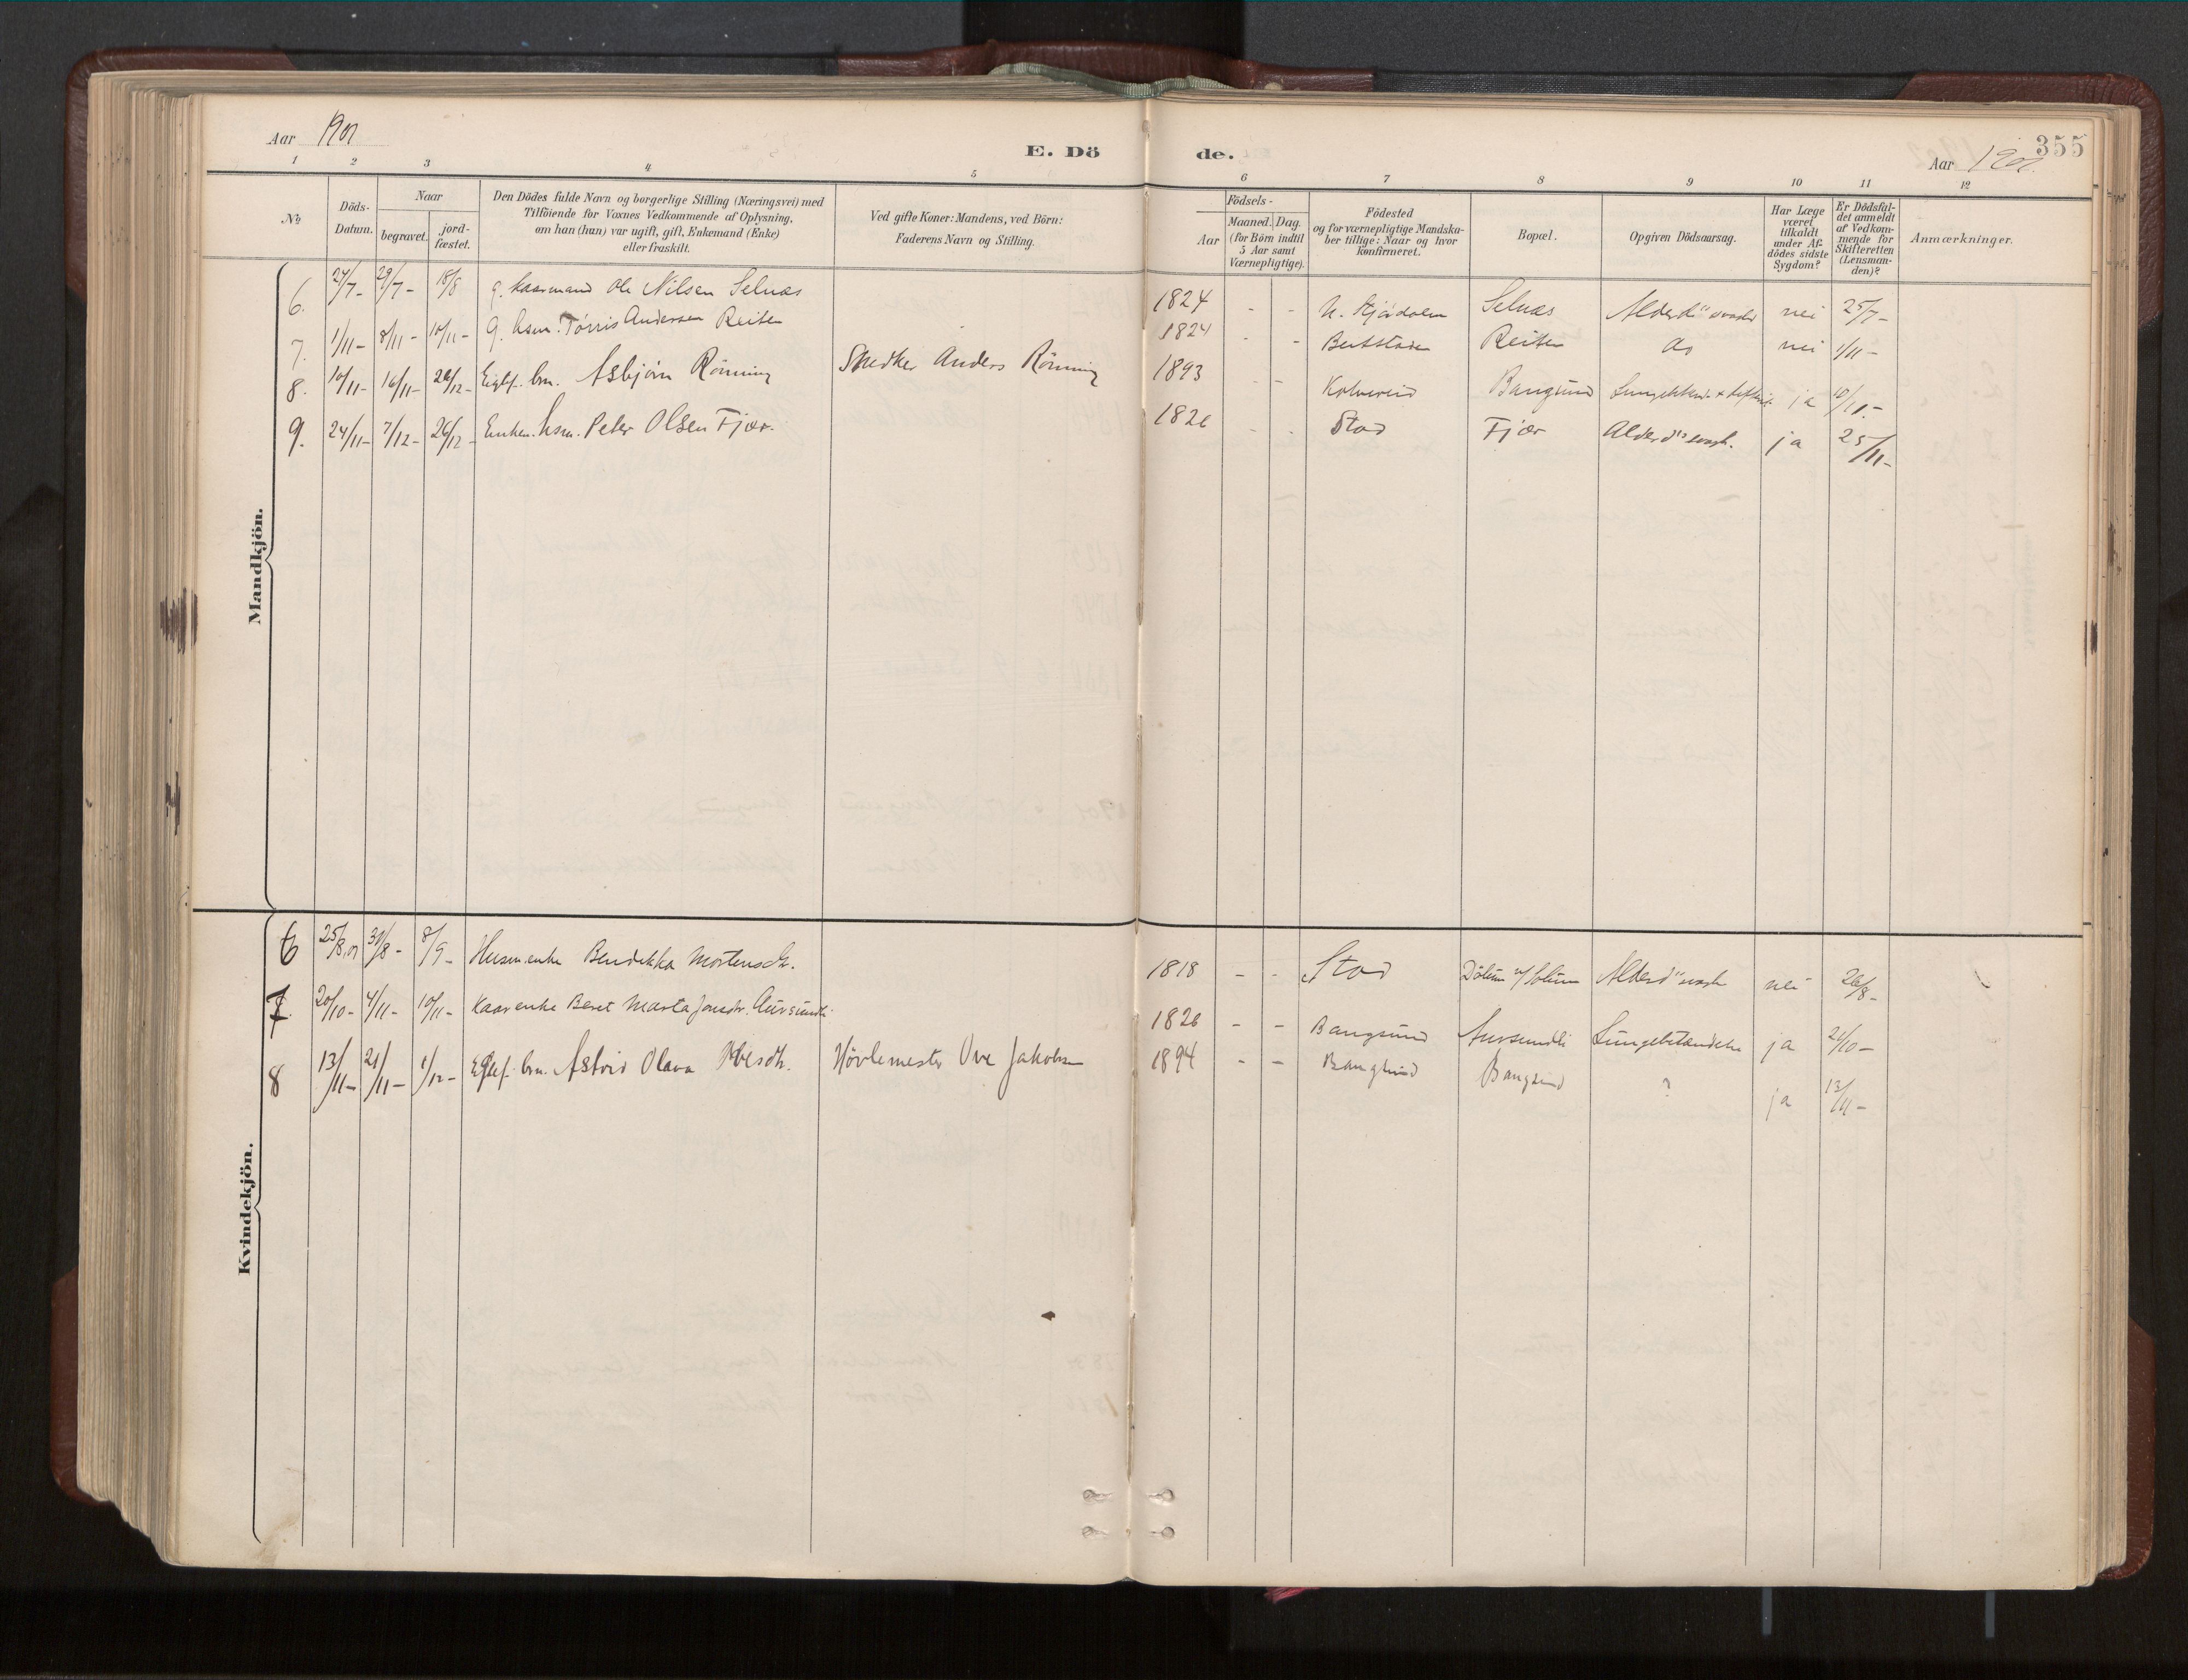 Aar 1901
E. Dö
de.
355
Aar 1901.
1 2 3 4 5 6 7 8 9 10 11 12
№
Döds-
Datum.
Naar
begravet.
jord-
fæstet.
Den Dödes fulde Navn og borgerlige Stilling (Næringsvei) med
Tilföiende for Voxnes Vedkommende af Oplysning,
om han (hun) var ugift, gift, Enkemand (Enke)
eller fraskilt.
Ved gifte Koner: Mandens, ved Börn:
Faderens Navn og Stilling.
Födsels-
Aar
Maaned. Dag.
(for Börn indtil
5 Aar samt
Værnepligtige).
Födested
og for værnepligtige Mandska-
ber tillige: Naar og hvor
konfirmeret.
Bopæl.
Opgiven Dödsaarsag.
Har Læge
været
tilkaldt
under Af-
dödes sidste
Sygdom?
Er Dödsfal-
det anmeldt
af Vedkom-
mende for
Skifteretten
(Lensman-
den)?
Anmærkninger.
Mandkjön.
6. 24/7- 29/7- 18/8 g. kaarmand Ole Nilsen Selnæs 1824 - - N. Stjördalen Selnæs Alderd" nei 25/7-
7. 1/11- 8/11- 10/11- g. hsm. Törris Andersen Reiten 1824 - - Reiten do nei 1/11-
8. 10/11- 16/11- 26/12- brn. Asbjörn Rönning Snedker Anders Rönning 1893 - - Kolvereid Bangsund ja 10/11.-
9. 24/11- 7/12- 26/12- Enkem. hsm. Peter Olsen Fjær. 1826 - - Stod Fjær Alderd"svagh. ja 25/11-
Kvindekjön.
6 25/8.01 31/8- 8/9- Husm.enke Bendikka Mortensdtr. 1818 - - Stod Alderd"svagh nei 26/8-
7. 20/10- 4/11- 10/11- Kaarenke Beret Marta Jonsdtr. Aursundli 1826 - - Bangsund Aursundli Lungebetændelse ja 21/10-
8 13/11- 21/11- 1/12- brn. Astrid Olava Ovesdtr. Hövlemester Ove Jakobsen 1894 - - Bangsund Bangsund ? ja 13/11-